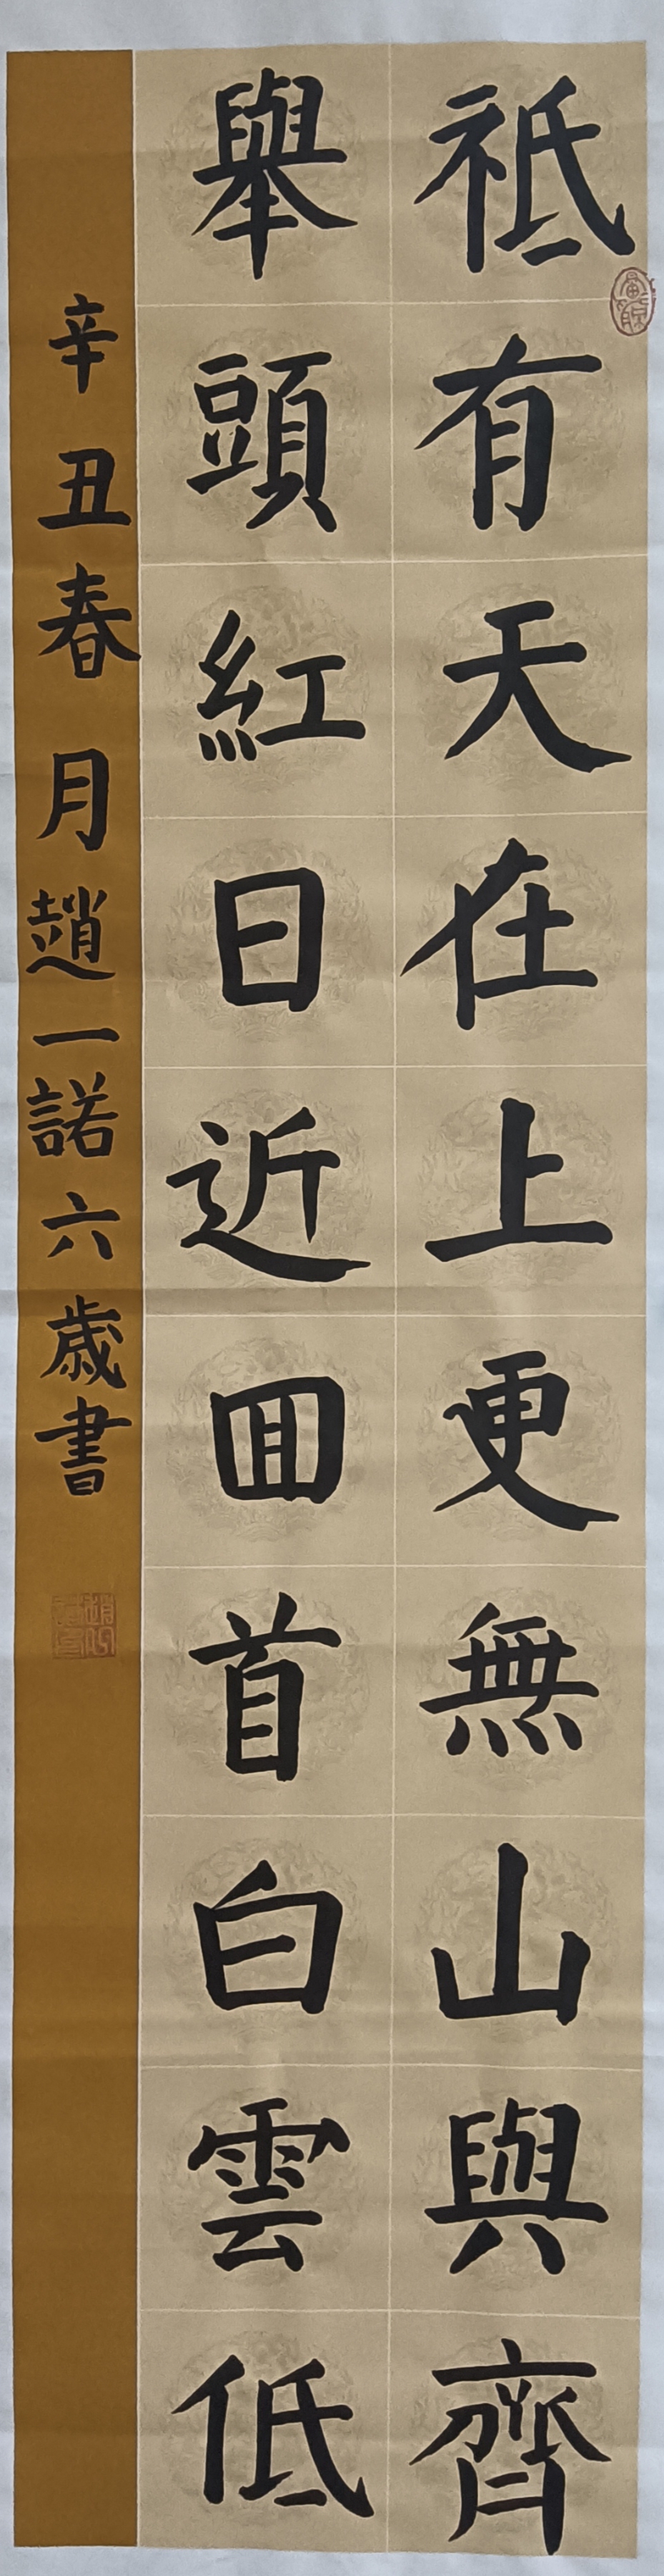 祗有天在上更無山與齊
舉頭紅日近囬首白雲低
辛丑春月趙一諾六歲書